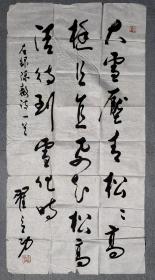 大雪壓青松〻高
挺且直要知松高
潔待到雪化時
右録陳毅詩一首